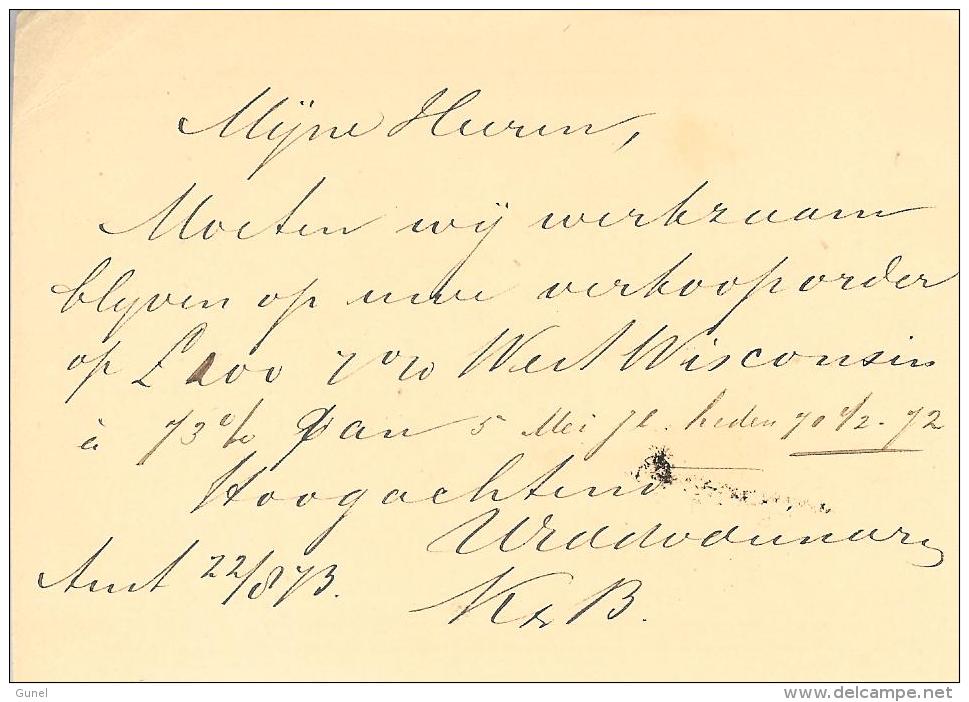 Mijne Heeren,
Moeten wij werkzaam
blijven op uwe verkooporder
op £ 200 7% West Wisconsin
à 73% van 5 Mei jl. heden 70 1/2 - 72
Hoogachtend
UEd dwdienaren
Amst 22/8 73. K & B.
Gunel
www.delcampe.net